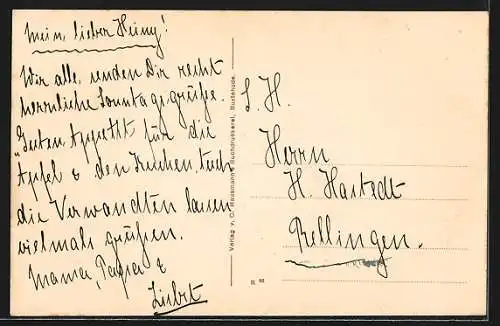 Mein lieber Heiny!
Wir alle senden Dir recht
herrliche Sonntagsgrüße.
"Guten Appetit für die
Äpfel & den Kuchen. Auch
die Verwandten lassen
vielmals grüßen.
Mama, Papa &
Verlag v. C. Hausmann's Buchdruckerei, Buxtehude.
S. H.
Herrn
H. Hastedt
Rellingen.